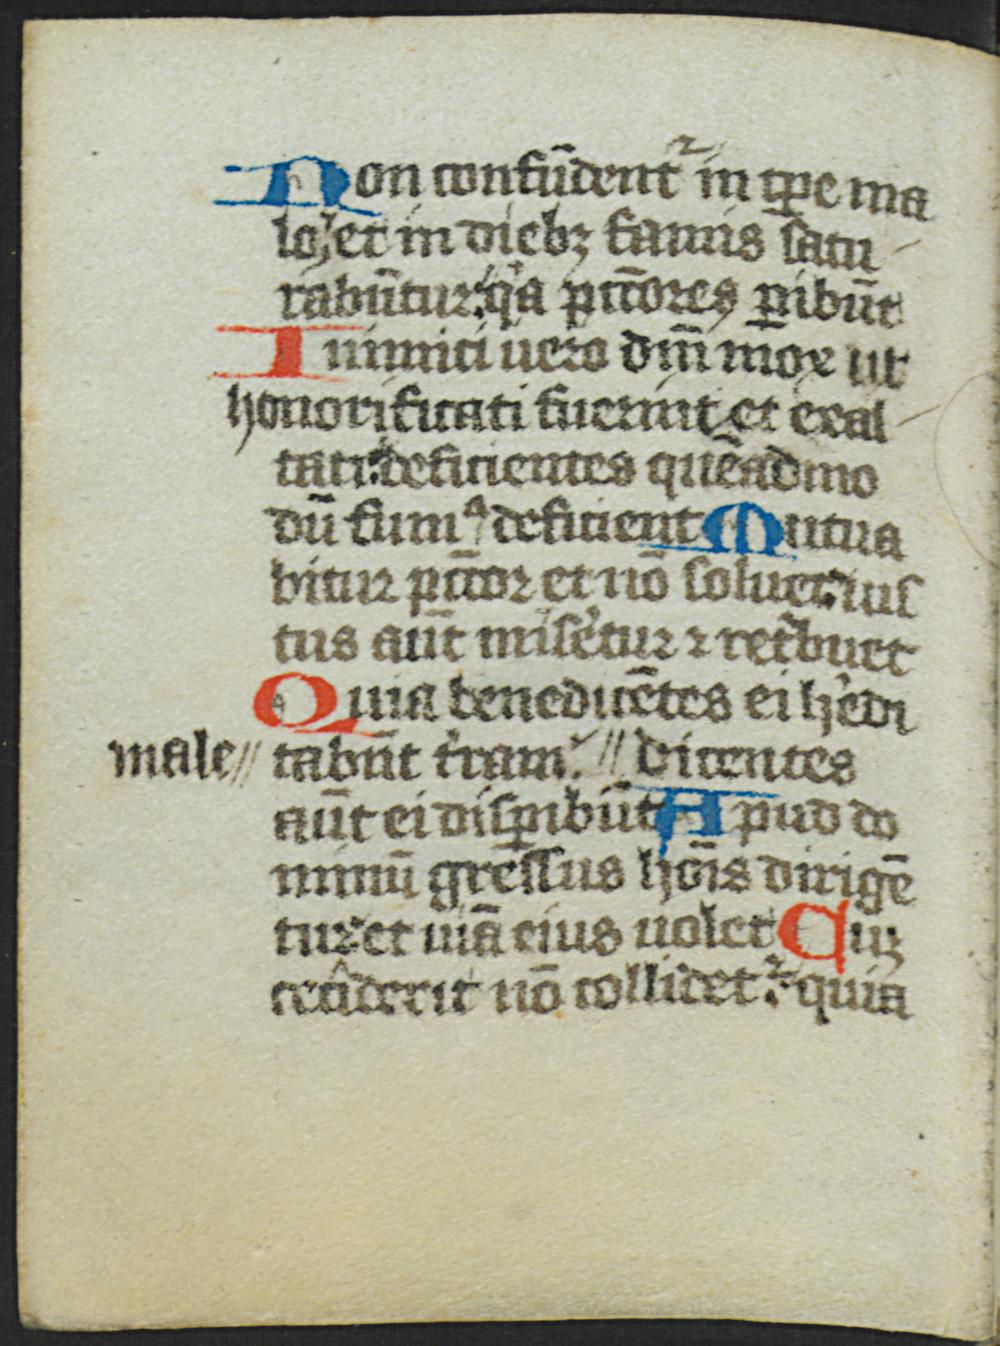 Non confūdentᷣ in tꝑe ma
lo et in diebꝫ famis satu
rabūtur: qͥa pctōres ꝑibūt
Inimici uero dm̄ mox ut
honorificati fuerint et exal
tati: deficientes quēadmo
dū fumꝰ deficient Mutua
bitur pctōr et nō soluet: ius
tus aūt miserͤtur ⁊ retͥbuet
Quia benedicētes ei hͤredi
male// tabūt tͤram: // dicentes
aūt ei disꝑibūt Apud do
minū gressus hoīs dirigē
tur et uiā eius uolet Cū
ceciderit nō collidetᷣ: quia